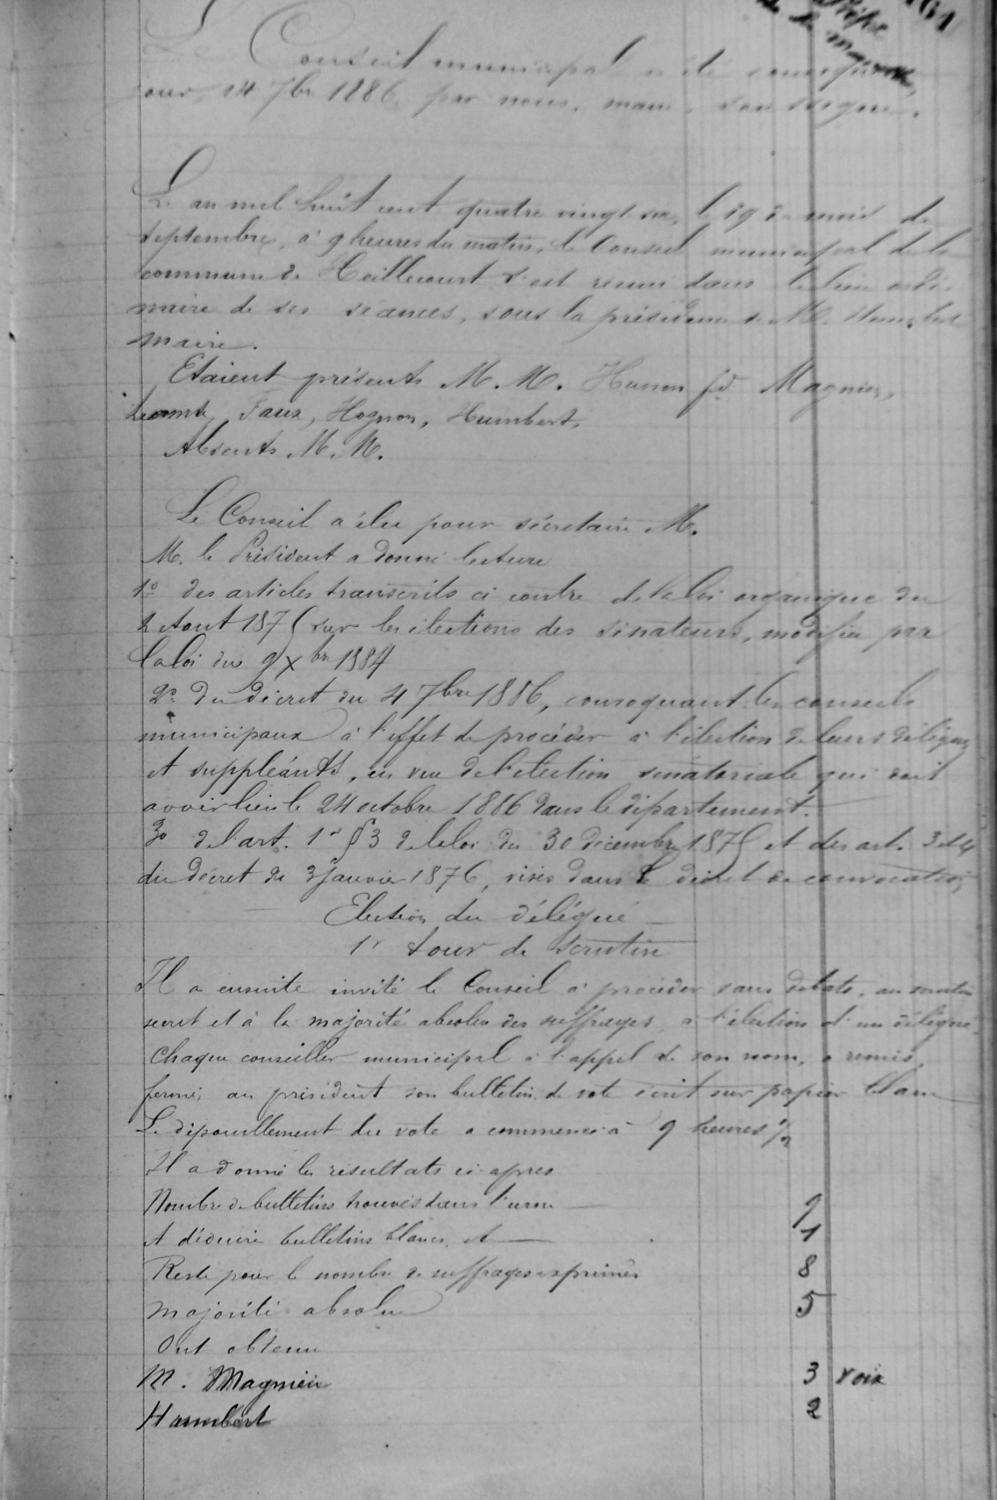 161
de la mairie
Le Conseil municipal a été convoqué
jour, 14 7bre 1886, par nous, maire, soussigné.
L'an mil huit cent quatre vingt six, le 19 du mois de
septembre, à 9 heures du matin, le Conseil municipal de la
commune de Heillecourt s'est réuni dans le lieu ordi-
naire de ses séances, sous la présidence de M. Humbert
maire.
Etaient présents M. M. Husson fd Magnien,
Lecomte, Faux, Hognon, Humbert,
Absents M. M.
Le Conseil a élu pour sécretaire M.
M. le Président a donné lecture
1º des articles transcrits ci contre de la loi organique du
2 Aout 1875 sur les élections des sénateurs, modifiée par
la loi du 9 Xbre 1884
2º Du décret du 4 7bre 1886, convoquant les conseils
municipaux à l'effet de procéder à l'élection de leurs délégués
et suppléants, en vue de l'élection sénatoriale qui doit
avoir lieu le 24 octobre 1886 dans le département.
3º de l'art. 1er § 3 de la loi du 30 décembre 1875 et des art. 3 et 4
du décret du 3 janvier 1876, visés dans le décret de convocation
Election du délégué
1r tour de scrutin
Il a ensuite invité le Conseil à procéder sans débats, au scrutin
secret et à la majorité absolue des suffrages, à l'élection d'un délégué
Chaque conseiller municipal à l'appel de son nom, a remis
fermé, au président son bulletin de vote écrit sur papier blanc
Le dépouillement du vote a commencé à 9 heures ½
Il a donné les résultats ci-après
Nombre de bulletins trouvés dans l'urne 9
A déduire bulletins blancs, et 1
Reste pour le nombre de suffrages exprimés 8
Majorité absolue 5
Ont obtenu
M. Magnien 3 voix
Humbert 2